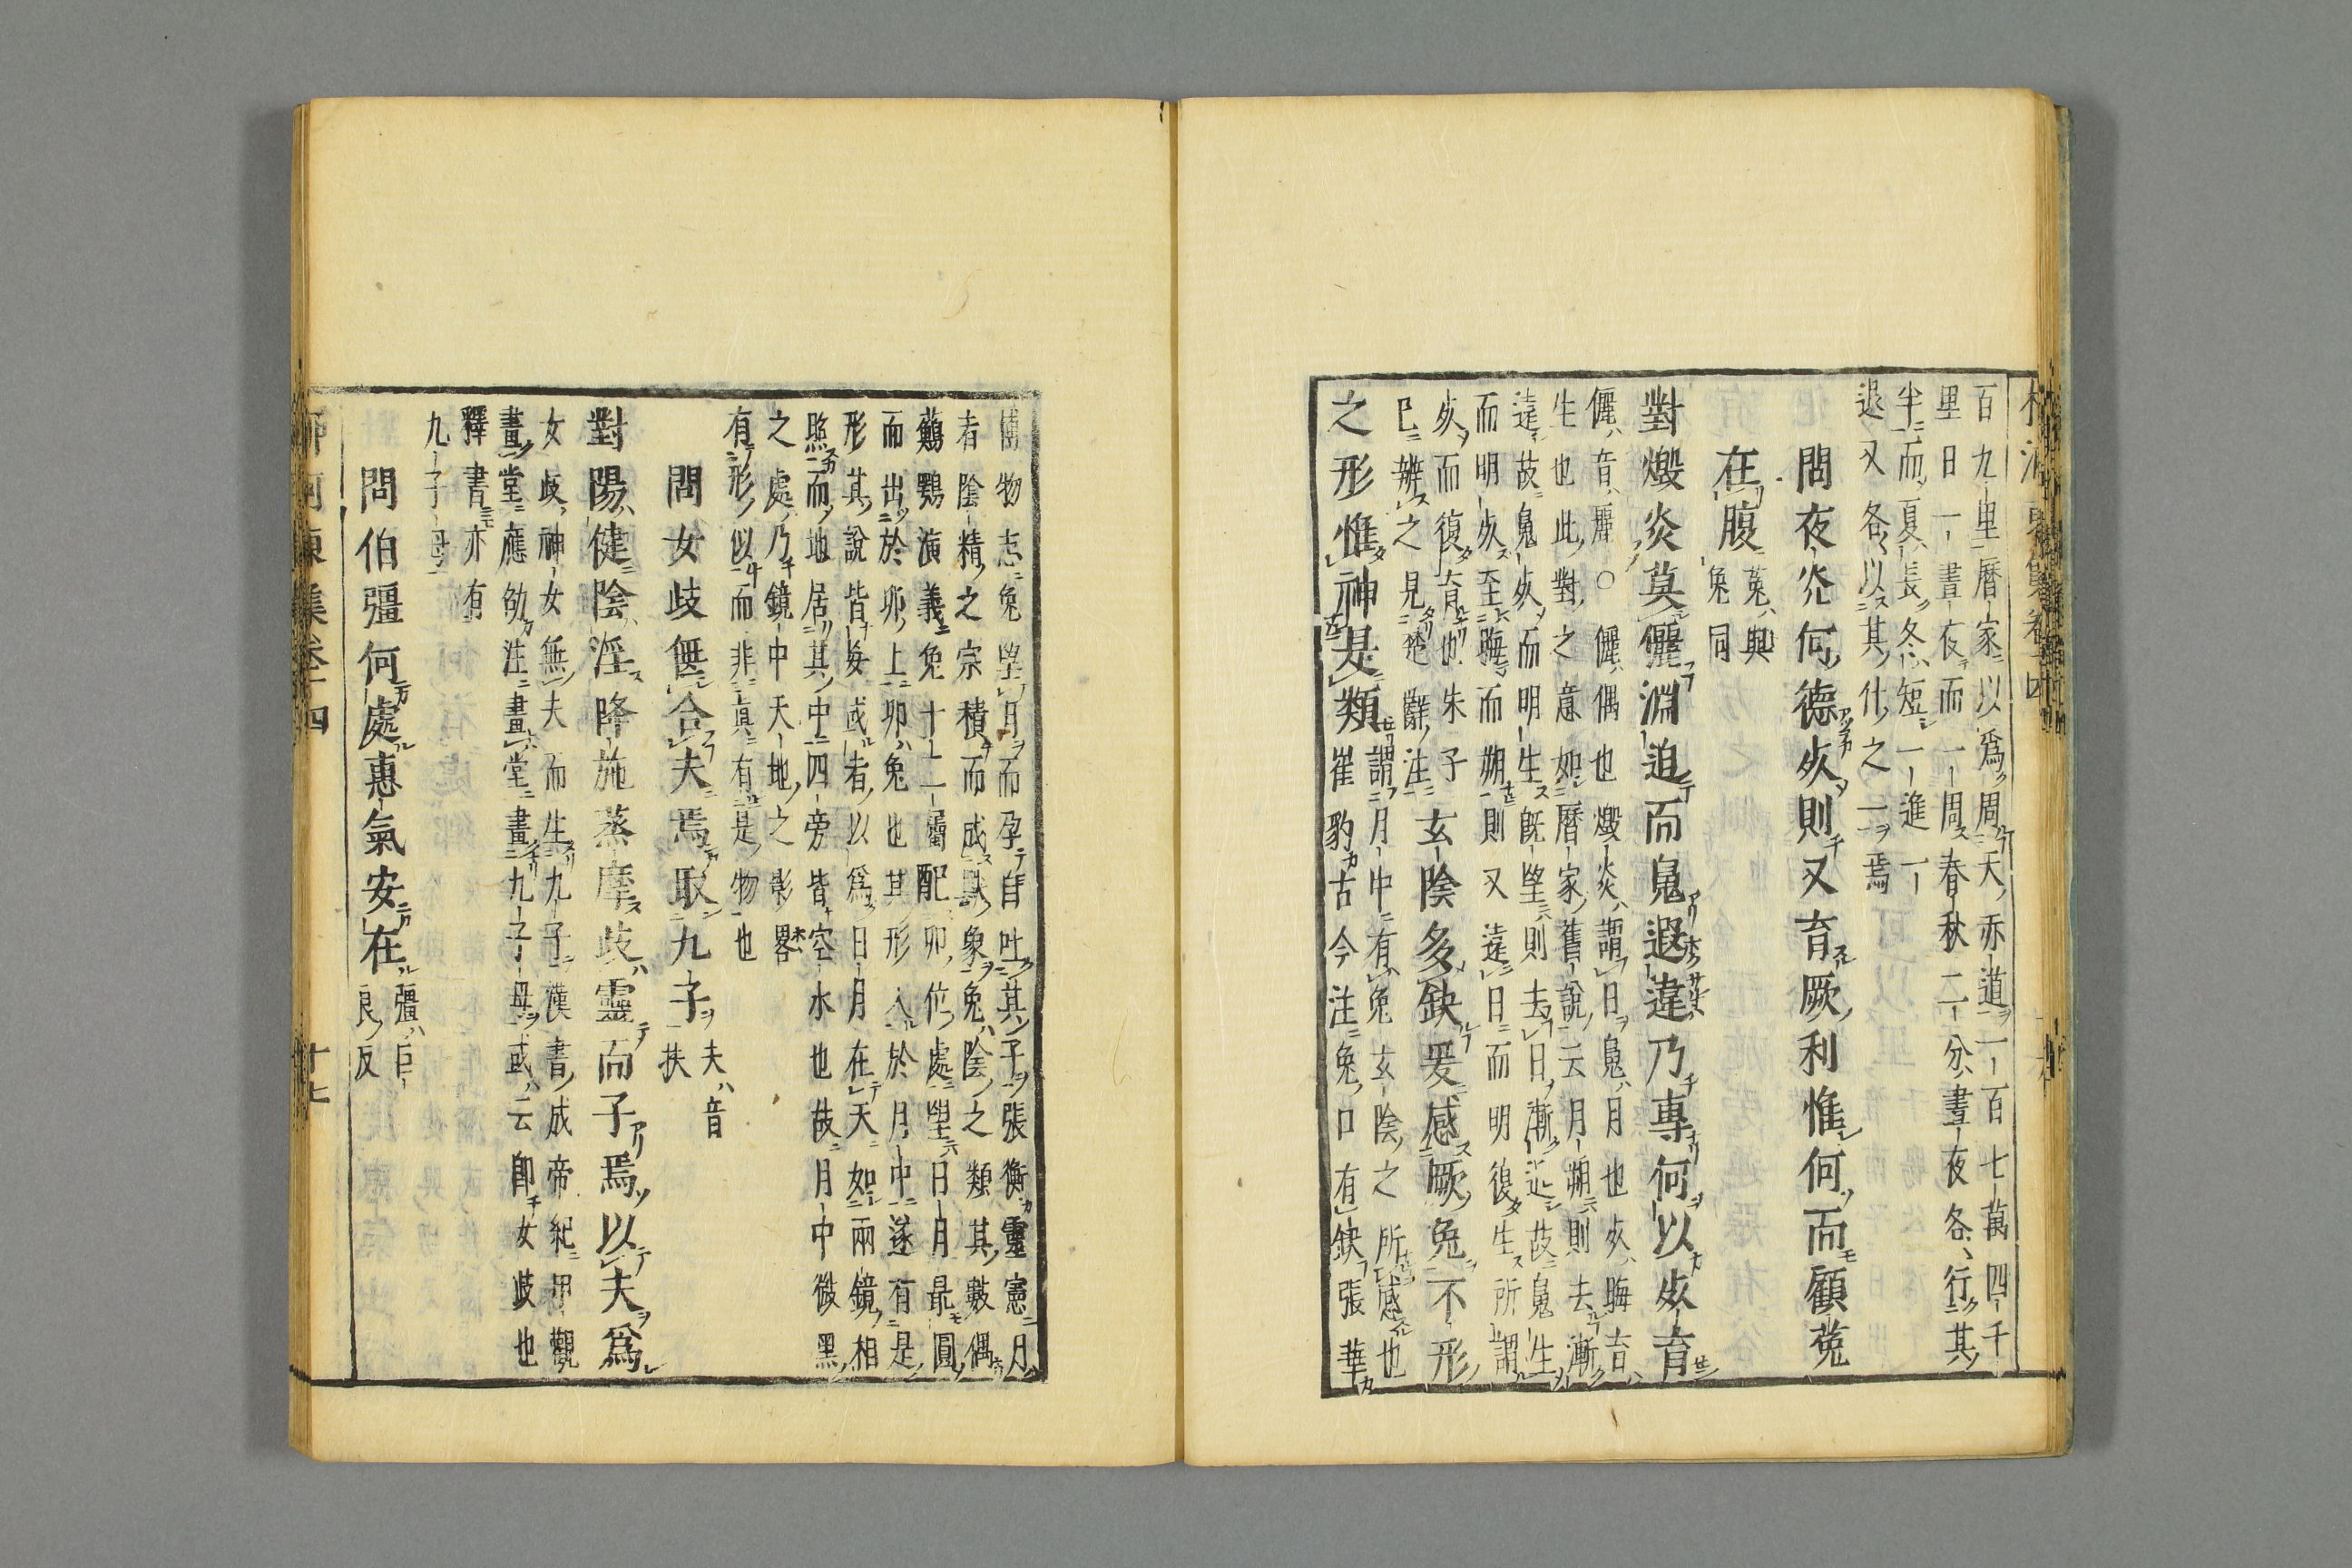 百九里曆家以爲周天赤道一百七萬四千
里日一晝夜而一周春秋二分晝夜各行其
半而夏長冬短一進一
退又各以其什之一焉
問夜炎何德死則又育厥利惟何而顧菟
在腹
菟與
兔同
對燬炎莫儷淵迫而魄遐違乃專何以死育
儷音麗〇儷偶也燬炎謂日魄月也死晦育
生也此對之意如曆家舊說云月朔則去漸
遠故魄死而明生旣望則去日漸近故魄生
而明死至晦而朔則又遠日而明復生所謂
死而復育也朱子
已辨之見楚辭注
玄陰多缺爰感厥兔不形
之形惟神是類
謂月中有兔玄陰之所感也
崔豹古今注兔口有缺張華
博物志兔望月而孕自吐其子張衡靈憲月
者陰精之宗積而成獸象兔陰之類其數偶
蘓鶚演義兔十二屬配卯位處望日月最圓
而出於卯上卯兔也其形入於月中遂有是
形其說皆每或者以爲日月在天如兩鏡相
照而地居其中四旁皆空水也故月中微黑
之處乃鏡中天地之影畧
有形似而非眞有是物也
問女歧無合夫焉取九子
夫音
扶
對陽健陰淫降施蒸摩歧靈而子焉以夫爲
女歧神女無夫而生九子漢書成帝紀甲觀
畫堂應劭注畫堂畫九子母或云卽女歧也
釋書亦有
九子母
問伯彊何處惠氣安在
彊巨
良反
河東集卷十四
十七